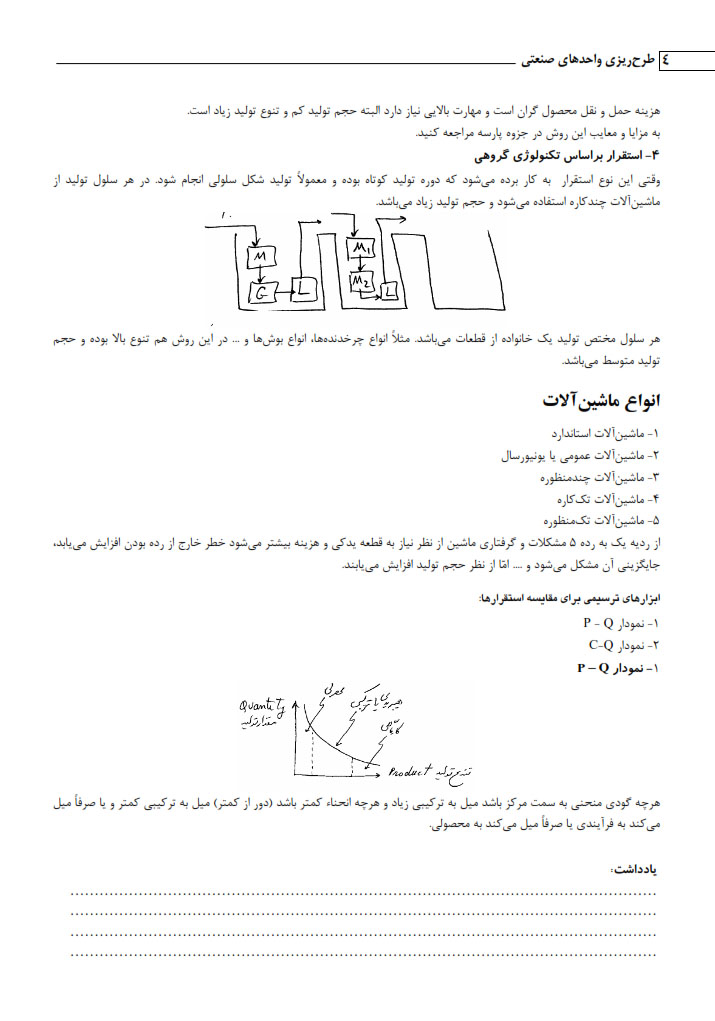 ٤ طرح‌ریزی واحدهای صنعتی
هزینه حمل و نقل محصول گران است و مهارت بالایی نیاز دارد البته حجم تولید کم و تنوع تولید زیاد است.
به مزایا و معایب این روش در جزوه پارسه مراجعه کنید.
۴- استقرار براساس تکنولوژی گروهی
وقتی این نوع استقرار به کار برده می‌شود که دوره تولید کوتاه بوده و معمولاً تولید شکل سلولی انجام شود. در هر سلول تولید از
ماشین‌آلات چندکاره استفاده می‌شود و حجم تولید زیاد می‌باشد.
M
G
L
M1
M2
L
هر سلول مختص تولید یک خانواده از قطعات می‌باشد. مثلاً انواع چرخدنده‌ها، انواع بوش‌ها و ... در این روش هم تنوع بالا بوده و حجم
تولید متوسط می‌باشد.
انواع ماشین‌آلات
۱- ماشین‌آلات استاندارد
۲- ماشین‌آلات عمومی یا یونیورسال
۳- ماشین‌آلات چندمنظوره
۴- ماشین‌آلات تک‌کاره
۵- ماشین‌آلات تک‌منظوره
از ردیه یک به رده ۵ مشکلات و گرفتاری ماشین از نظر نیاز به قطعه یدکی و هزینه بیشتر می‌شود خطر خارج از رده بودن افزایش می‌یابد،
جایگزینی آن مشکل می‌شود و .... امّا از نظر حجم تولید افزایش می‌یابند.
ابزارهای ترسیمی برای مقایسه استقرارها:
۱- نمودار P - Q
۲- نمودار C-Q
۱- نمودار P – Q
Quantity
مقدار تولید
هیبریدی یا ترکیبی
کارگاهی
Product تنوع تولید
هرچه گودی منحنی به سمت مرکز باشد میل به ترکیبی زیاد و هرچه انحناء کمتر باشد (دور از کمتر) میل به ترکیبی کمتر و یا صرفاً میل
می‌کند به فرآیندی یا صرفاً میل می‌کند به محصولی.
یادداشت: